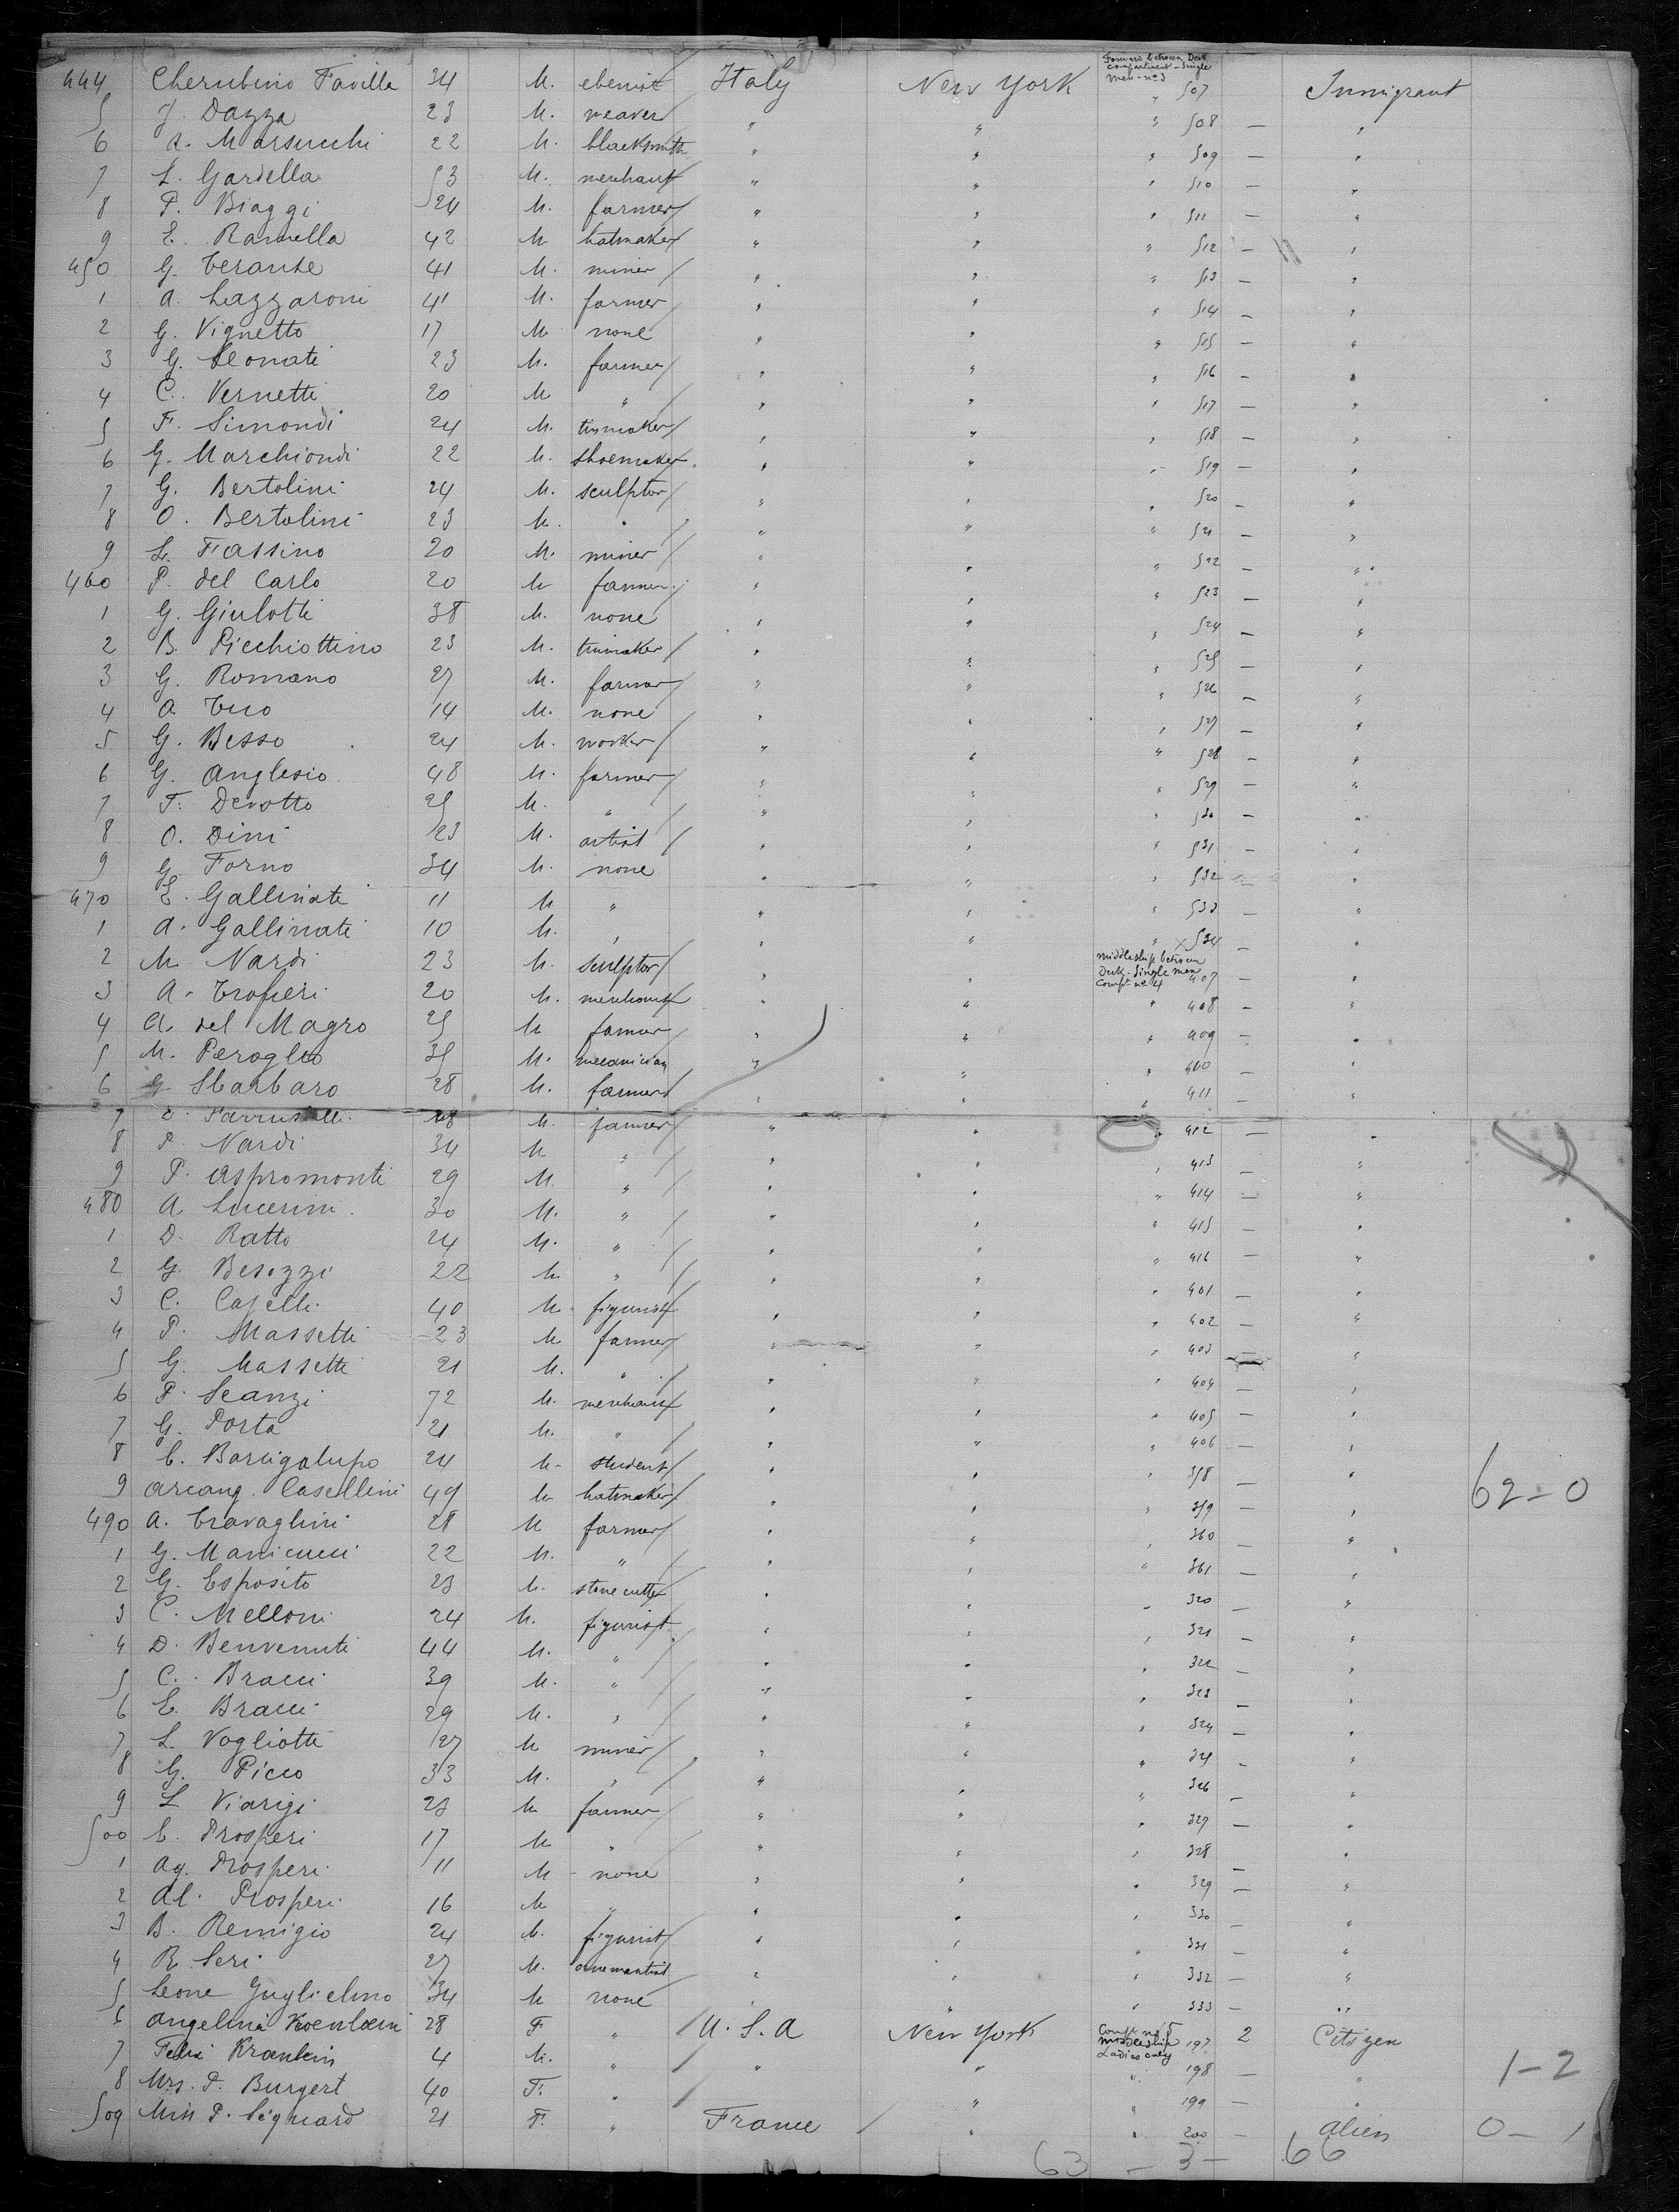 Forward between Deck
compartment - Single
men - no 3
444 Cherubino Favilla 34 M. ebenist Italy New York 507 Immigrant
5 J. Dazza 23 M. weaver " " " 508 — "
6 A. Marsucchi 22 M. blacksmith " " " 509 — "
7 L. Gardella 53 M. merchant " " " 510 — "
8 P. Biaggi 24 M. farmer " " " 511 — "
9 E. Ramella 42 M hatmaker " " " 512 — "
450 G. 41 M. miner " " " 513 — "
1 A. Lazzaroni 41 M. farmer " " " 514 — "
2 G. Vignetto 17 M none " " " 515 — "
3 G. Leonati 23 M. farmer " " " 516 — "
4 C. Vernetti 20 M " " " " 517 — "
5 F. Simondi 24 M. tinmaker " " " 518 — "
6 G. Marchiondi 22 M. shoemaker " " " 519 — "
7 G. Bertolini 24 M. sculptor " " " 520 — "
8 O. Bertolini 23 M. " " " " 521 — "
9 L. Fassino 20 M. miner " " " 522 — "
460 P. del Carlo 20 M farmer " " " 523 — "
1 G. Giulotti 38 M. none " " " 524 — "
2 B. Picchiottino 23 M. tinmaker " " " 525 — "
3 G. Romano 27 M. farmer " " " 526 — "
4 A. 14 M. none " " " 527 — "
5 G. Besso 24 M. worker " " " 528 — "
6 G. Anglesio 48 M. farmer " " " 529 — "
7 F. Devotto 25 M. " " " " 530 — "
8 O. Dini 23 M. artist " " " 531 — "
9 G. Forno 34 M. none " " " 532 — "
470 E. Gallinati 11 M " " " " 533 — "
1 A. Gallinati 10 M. " " " " x 534 — "
Middleship between
Deck - Single men
Compt no 4
2 M. Nardi 23 M. sculptor " " 407 — "
3 A. Trofieri 20 M. merchant " " " 408 — "
4 A. del Magro 25 M farmer " " " 409 — "
5 M. Peroglio 35 M. mecanician " " " 410 — "
6 G. Sbarbaro 28 M. farmer " " " 411 — "
7 28 M. farmer " " " 412 — "
8 P. Nardi 34 M " " " " 413 — "
9 P. Aspromonti 29 M. " " " " 414 — "
480 A. Lucerini 30 M. " " " " 415 — "
1 D. Ratto 24 M. " " " " 416 — "
2 G. Besozzi 22 M. " " " " 401 — "
3 C. Caselli 40 M figurist " " " 402 — "
4 P. Massetti 23 M farmer " " " 403 — "
5 G. Massetti 21 M. " " " " 404 — "
6 P. Scanzi 72 M. merchant " " " 405 — "
7 G. Porta 21 M. " " " " 406 — "
8 C. Bacigalupo 24 M student " " " 358 — "
9 Arcang. Casellini 49 M hatmaker " " " 359 — " 62 - 0
490 A. Travaglini 28 M farmer " " " 360 — "
1 G. Manicucci 22 M. " " " " 361 — "
2 G. Esposito 23 M. stone cutter " " " 320 — "
3 C. Melloni 24 M. figurist " " " 321 — "
4 D. Benvenuti 44 M. " " " " 322 — "
5 C. Bracci 39 M. " " " " 323 — "
6 E. Bracci 29 M. " " " " 324 — "
7 L. Vogliotti 27 M miner " " " 325 — "
8 G. Picco 33 M. " " " " 326 — "
9 L Viarigi 23 M farmer " " " 327 — "
500 E. Prosperi 17 M " " " " 328 — "
1 Ag. Prosperi 11 M none " " " 329 — "
2 Al. Prosperi 16 M " " " " 330 — "
3 B. Remigio 24 M. figurist " " " 331 — "
4 R. Seri 27 M. ornemantist " " " 332 — "
5 Leone Guglielmo 34 M none " " " 333 — "
Compt no 5
Middleship
Ladies only
6 Angelina 28 F " U.S.A New York 197 2 Citizen
7 4 M. " " " " 198 — " 1 - 2
8 Mrs. P. Burgert 40 F. " " " 199 — "
509 Miss P. 21 F. " France " " 200 — alien 0 - 1
63 - 3 - 66